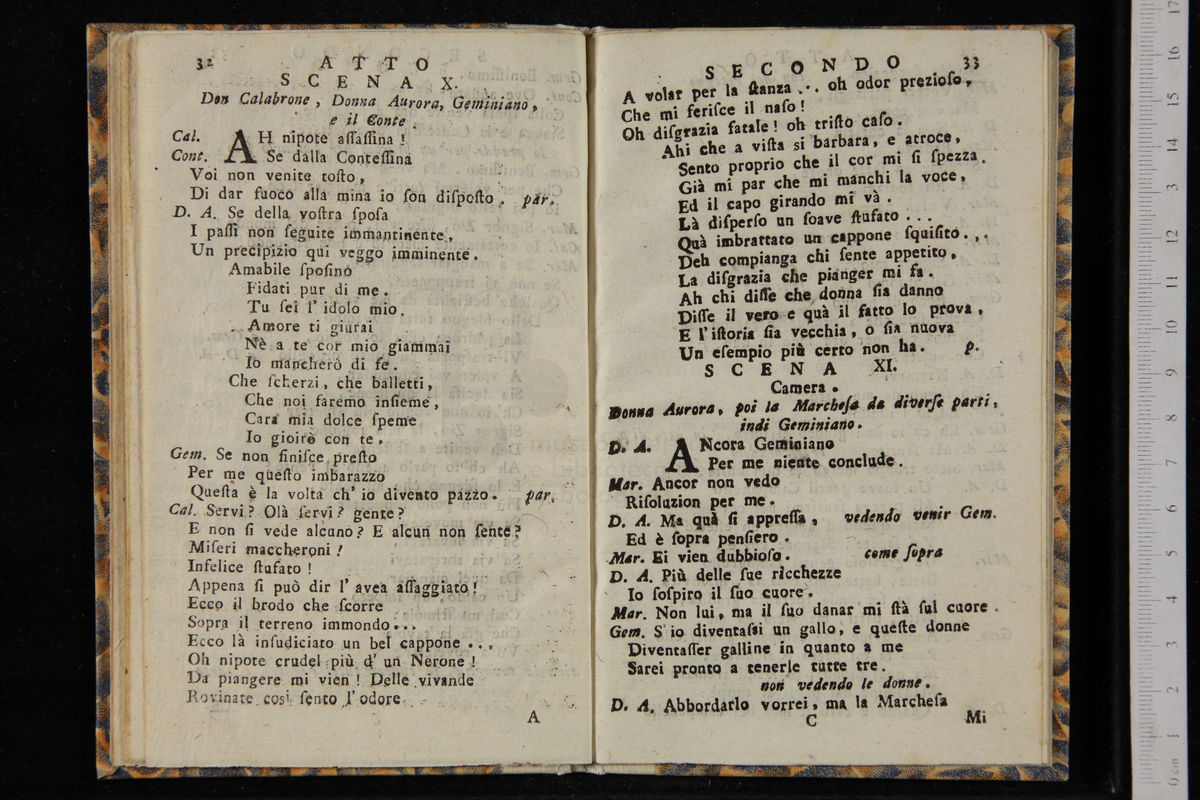 32
ATTO
SCENA X.
Don Calabrone, Donna Aurora, Geminiano,
e il Conte.
Cal. AH nipote aſſaſſina!
Cont. Se dalla Conteſſina
Voi non venite toſto,
Di dar fuoco alla mina io ſon diſpoſto. par.
D. A. Se della voſtra ſpoſa
I paſſi non ſeguite immantinente,
Un precipizio qui veggo imminente.
Amabile ſpoſino
Fidati pur di me.
Tu ſei l' idolo mio.
Amore ti giurai
Nè a te cor mio giammai
Io mancherò di fe.
Che ſcherzi, che balletti,
Che noi faremo inſieme,
Cara mia dolce ſpeme
Io gioirò con te.
Gem. Se non finiſce preſto
Per me queſto imbarazzo
Queſta è la volta ch' io divento pazzo. par.
Cal. Servi? Olà ſervi? gente?
E non ſi vede alcuno? E alcun non ſente?
Miſeri maccheroni!
Infelice ſtufato!
Appena ſi può dir l' avea aſſaggiato!
Ecco il brodo che ſcorre
Sopra il terreno immondo...
Ecco là inſudiciato un bel cappone ...
Oh nipote crudel più d' un Nerone!
Da piangere mi vien! Delle vivande
Rovinate così ſento l' odore
A
SECONDO
33
A volar per la ſtanza ... oh odor prezioſo,
Che mi feriſce il naſo!
Oh diſgrazia fatale! oh triſto caſo.
Ahi che a viſta sì barbara, e atroce,
Sento proprio che il cor mi ſi ſpezza.
Già mi par che mi manchi la voce,
Ed il capo girando mi và.
Là diſperſo un ſoave ſtufato...
Quà imbrattato un cappone ſquiſito...
Deh compianga chi ſente appetito,
La diſgrazia che pianger mi fa.
Ah chi diſſe che donna ſia danno
Diſſe il vero e quà il fatto lo prova,
E l'iſtoria ſia vecchia, o ſia nuova
Un eſempio più certo non ha. p.
SCENA XI.
Camera.
Donna Aurora, poi la Marcheſa da diverſe parti,
indi Geminiano.
D. A. ANcora Geminiano
Per me niente conclude.
Mar. Ancor non vedo
Riſoluzion per me.
D. A. Ma quà ſi appreſſa, vedendo venir Gem.
Ed è ſopra penſiero.
Mar. Ei vien dubbioſo. come ſopra
D. A. Più delle ſue ricchezze
Io ſoſpiro il ſuo cuore.
Mar. Non lui, ma il ſuo danar mi ſtà ſul cuore.
Gem. S' io diventaſsi un gallo, e queſte donne
Diventaſſer galline in quanto a me
Sarei pronto a tenerle tutte tre.
non vedendo le donne.
D. A. Abbordarlo vorrei, ma la Marcheſa
C
Mi